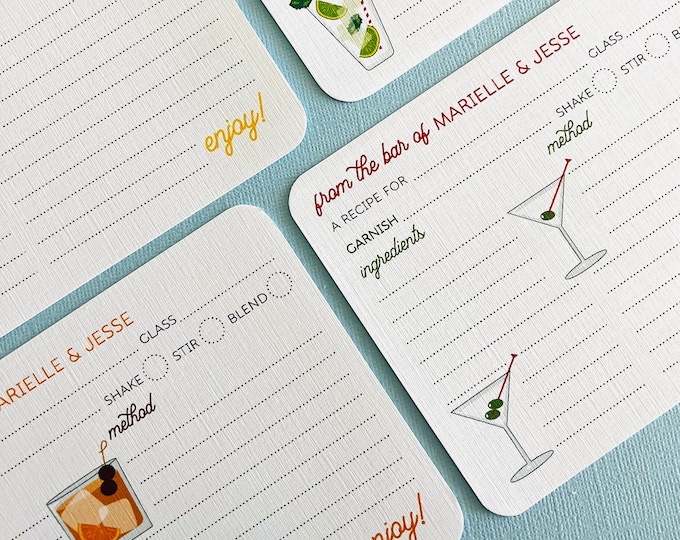 enjoy!
from the bar of MARIELLE & JESSE
A RECIPE FOR
GLASS
GARNISH
SHAKE STIR B
ingredients
method
ARIELLE & JESSE
GLASS
SHAKE STIR BLEND
method
njoy!